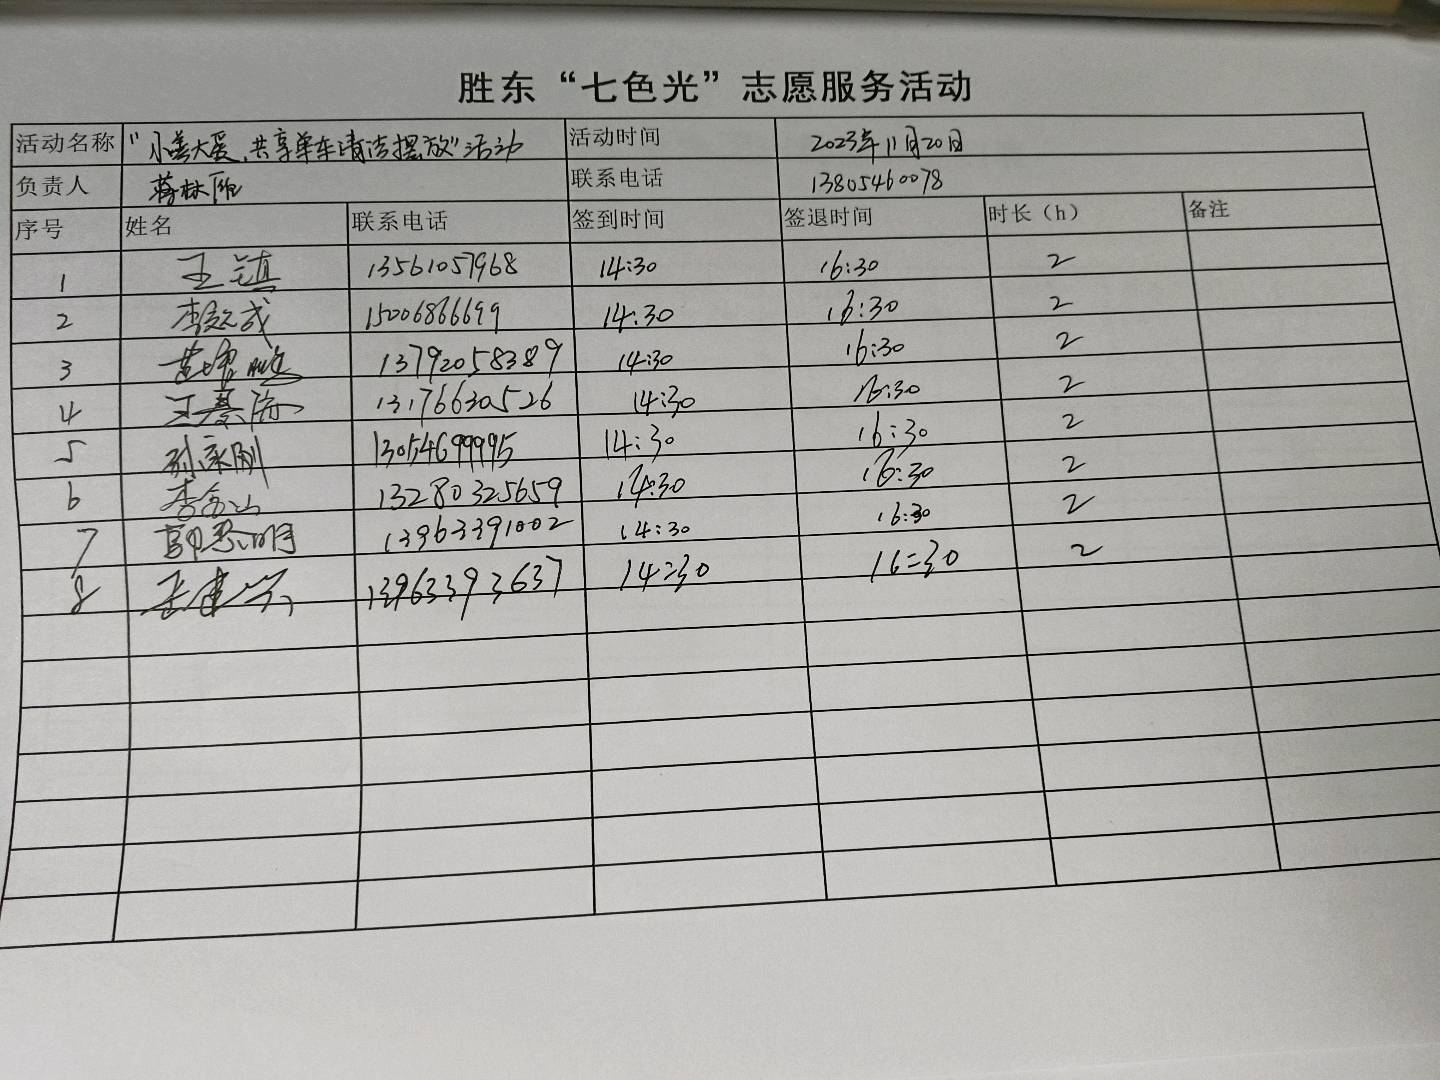 胜东“七色光”志愿服务活动
活动名称 “小善大爱、共享单车清洁摆放”活动 活动时间 2023年11月20日
负责人 联系电话 13805460078
序号 姓名 联系电话 签到时间 签退时间 时长（h） 备注
1 王镇 13561057968 14:30 16:30 2
2 李 成 15006866699 14:30 16:30 2
3 黄增 13792058389 14:30 16:30 2
4 王 13176630526 14:30 16:30 2
5 孙家刚 13054699995 14:30 16:30 2
6 李金山 13280325659 14:30 16:30 2
7 明 13963391002 14:30 16:30 2
8 王建 13963393637 14:30 16:30 2